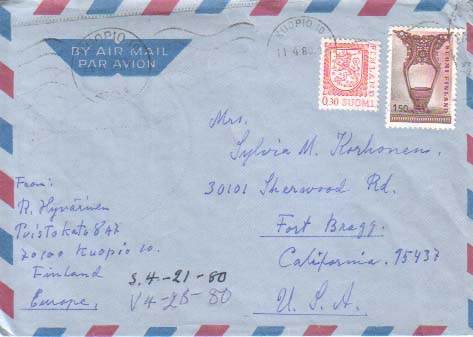 BY AIR MAIL
PAR AVION
KUOPIO 10
11.4.80
0,30 SUOMI
FINLAND
1,50
SUOMI-FINLAND
Mrs.
Sylvia M. Korhonen.
30101 Sherwood Rd.
Fort Bragg.
California. 95437
U. S. A.
From:
R. Hyvärinen
Puistokatu 8 A7
70100 Kuopio 10.
Finland
Europe.
S. 4-21-80
V 4-28-80